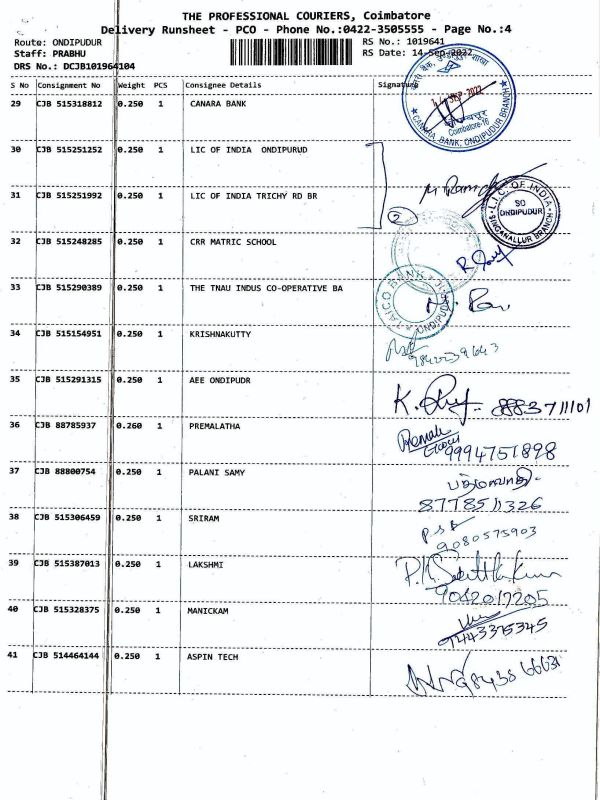 THE PROFESSIONAL COURIERS, Coimbatore
Delivery Runsheet - PCO - Phone No.:0422-3505555 - Page No.:4
Route: ONDIPUDUR RS No.: 1019641
Staff: PRABHU RS Date: 14-Sep-2022
DRS No.: DCJB101964104
S No Consignment No Weight PCS Consignee Details Signature
29 CJB 515318812 0.250 1 CANARA BANK
14 SEP 2022
Coimbatore-16
CANARA BANK: ONDIPUDUR BRANCH
30 CJB 515251252 0.250 1 LIC OF INDIA ONDIPURUD
31 CJB 515251992 0.250 1 LIC OF INDIA TRICHY RD BR
2
L.I.C. OF INDIA
SO
ONDIPUDUR
SINGANALLUR BRANCH
32 CJB 515248285 0.250 1 CRR MATRIC SCHOOL
33 CJB 515290389 0.250 1 THE TNAU INDUS CO-OPERATIVE BA
TAICO BANK
34 CJB 515154951 0.250 1 KRISHNAKUTTY
35 CJB 515291315 0.250 1 AEE ONDIPUDR
8883711101
36 CJB 88785937 0.260 1 PREMALATHA
9994751898
37 CJB 88800754 0.250 1 PALANI SAMY
8778511326
38 CJB 515306459 0.250 1 SRIRAM
9080575903
39 CJB 515387013 0.250 1 LAKSHMI
9042017205
40 CJB 515328375 0.250 1 MANICKAM
9443375345
41 CJB 514464144 0.250 1 ASPIN TECH